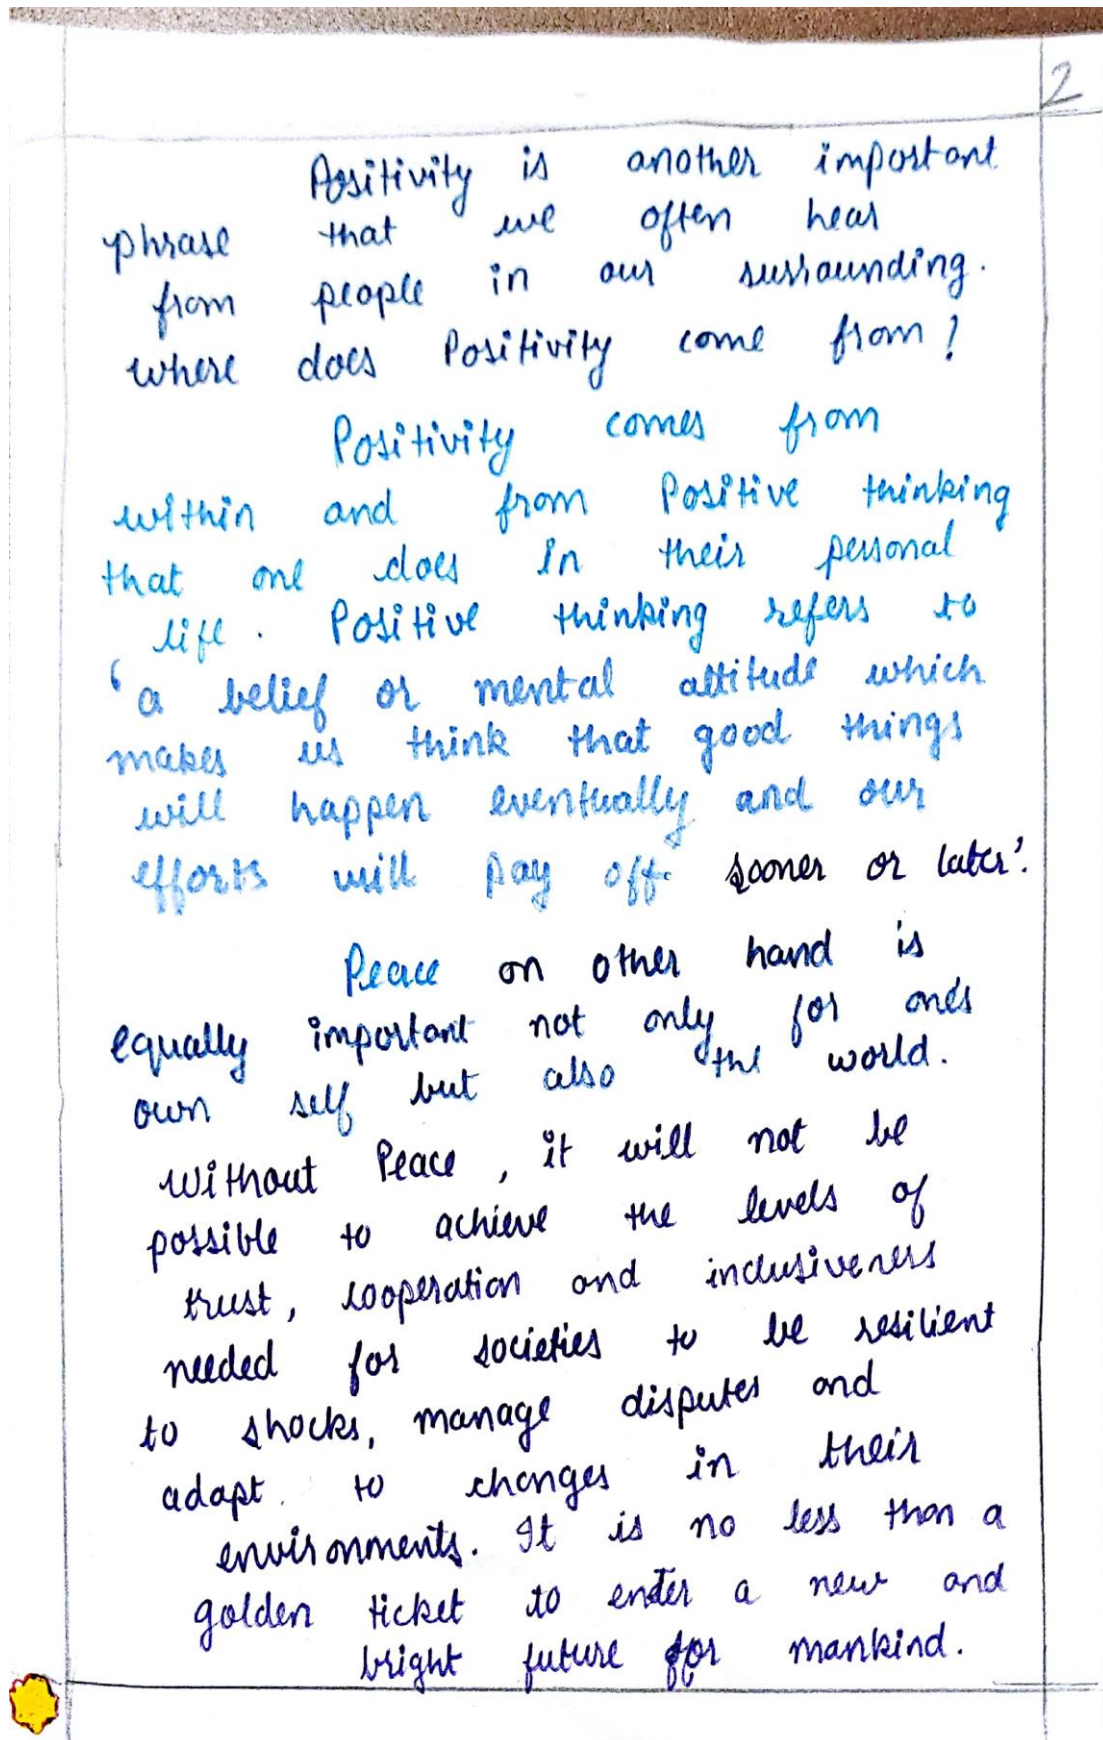 2
Positivity is another important
phrase that we often hear
from people in our surrounding.
where does Positivity come from?
Positivity comes from
within and from Positive thinking
that one does in their personal
life. Positive thinking refers to
'a belief or mental attitude which
makes us think that good things
will happen eventually and our
efforts will pay off. sooner or later'.
Peace on other hand is
equally important not only for one's
own self but also the world.
without Peace, it will not be
possible to achieve the levels of
trust, cooperation and inclusiveness
needed for societies to be resilient
to shocks, manage disputes and
adapt to changes in their
environments. It is no less than a
golden ticket to enter a new and
bright future for mankind.